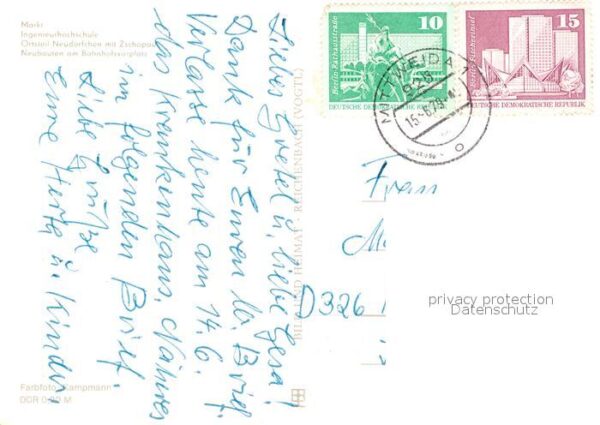 Markt
Ingenieurhochschule
Ortsteil Neudörfchen mit Zschopau
Neubauten am Bahnhofsvorplatz
Liebes Gretel u. liebe Gesa!
Dank für Euren lb. Brief.
Verlasse heute am 14.6.
das Krankenhaus. Näheres
im folgenden Brief.
Liebe Grüße
Eure Herta u. Kinder.
BILD UND HEIMAT · REICHENBACH (VOGTL)
Farbfoto: Kampmann
DDR 0,20 M
Berlin, Rathausstraße
10
DEUTSCHE DEMOKRATISCHE
Berlin, Fischerinsel
15
DEUTSCHE DEMOKRATISCHE REPUBLIK
MITTWEIDA
925
Frau
D 326
privacy protection
Datenschutz